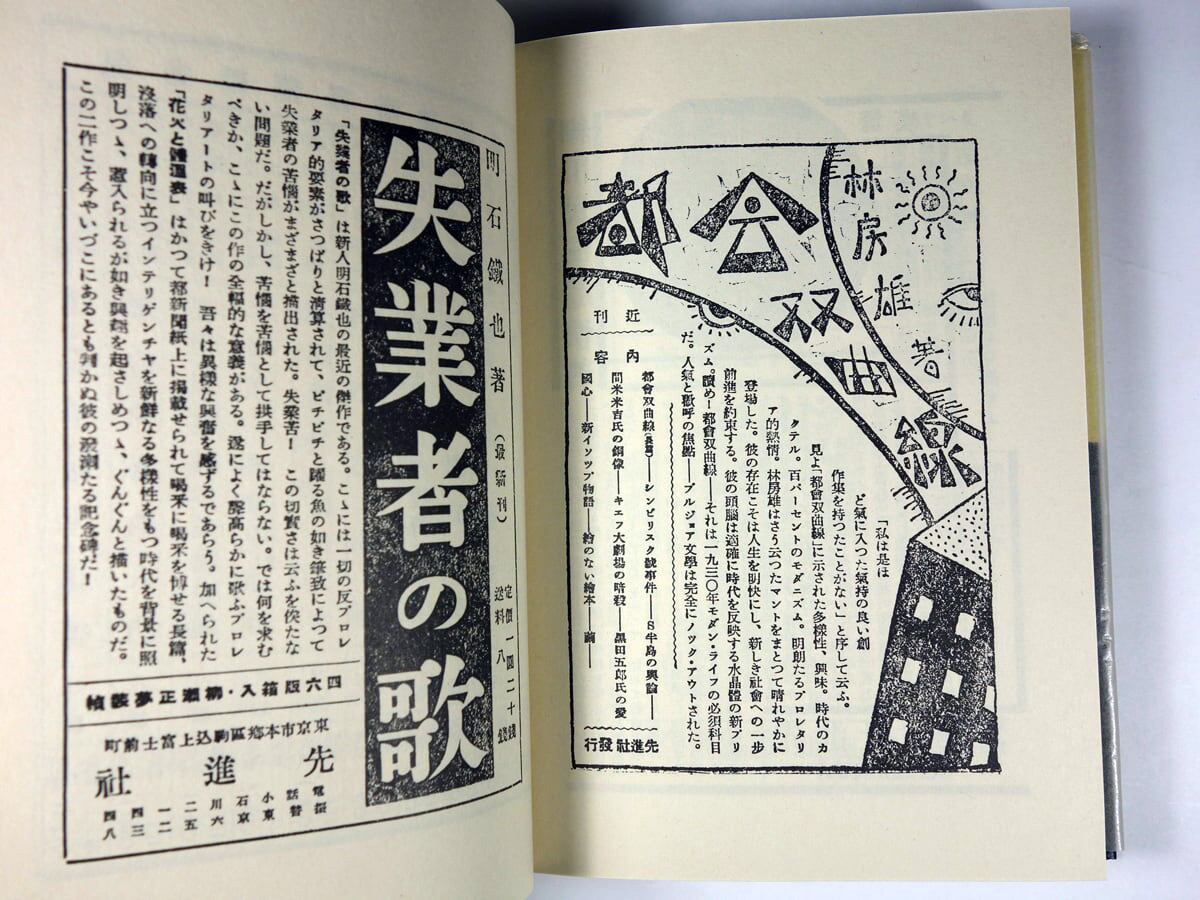 林房雄著
都会双曲線
近刊
「私は是ほ
ど氣に入つた氣持の良い創
作集を持つたことがない」と序して云ふ。
見よ「都會双曲線」に示された多樣性、興味。時代のカ
クテル。百パーセントのモダニズム。明朗たるプロレタリ
ア的熱情。林房雄はさう云つたマントをまとつて晴れやかに
登場した。彼の存在こそは人生を明快にし、新しき社會への一歩
前進を約束する。彼の頭腦は適確に時代を反映する水晶體の新プリ
ズム。讀め!都會双曲線——それは一九三〇年モダン・ライフの必須科目
だ。人氣と歡呼の焦點——ブルジョア文學は完全にノック・アウトされた。
內容
都會双曲線(長篇)——シンビリスク號事件——S半島の輿論——
間米米吉氏の銅像——キエフ大劇場の暗殺——黒田五郎氏の愛
國心——新イソップ物語——繪のない繪本——繭——
先進社發行
明石鐵也著(最新刊)
定價一四二十錢
送料八
失業者の歌
「失業者の歌」は新人明石鐵也の最近の傑作である。こゝには一切の反プロレ
タリア的要素がさつぱりと淸算されて、ピチピチと躍る魚の如き筆致によつて
失業者の苦惱がまざまざと描出された。失業苦! この切實さは云ふを俟たな
い問題だ。だがしかし、苦惱を苦惱として拱手してはならない。では何を求む
べきか、こゝにこの作の全幅的な意義がある。遂によく聲高らかに歌ふプロレ
タリアートの叫びをきけ! 吾々は異樣な興奮を感ずるであらう。加へられた
「花火と
表」はかつて都新聞紙上に揭載せられて喝釆に喝釆を博せる長篇、
沒落への轉向に立つインテリゲンチヤを新鮮なる多樣性をもつ時代を背景に照
明しつゝ、
入られるが如き興趣を起さしめつゝ、ぐんぐんと描いたものだ。
この二作こそ今やいづこにあるとも判かぬ彼の
たる記念碑だ!
四六版箱入・柳瀬正夢裝幀
東京市本鄕區駒込上富士前町
先進社
電話小石川二一四四
振替東京六五二三八